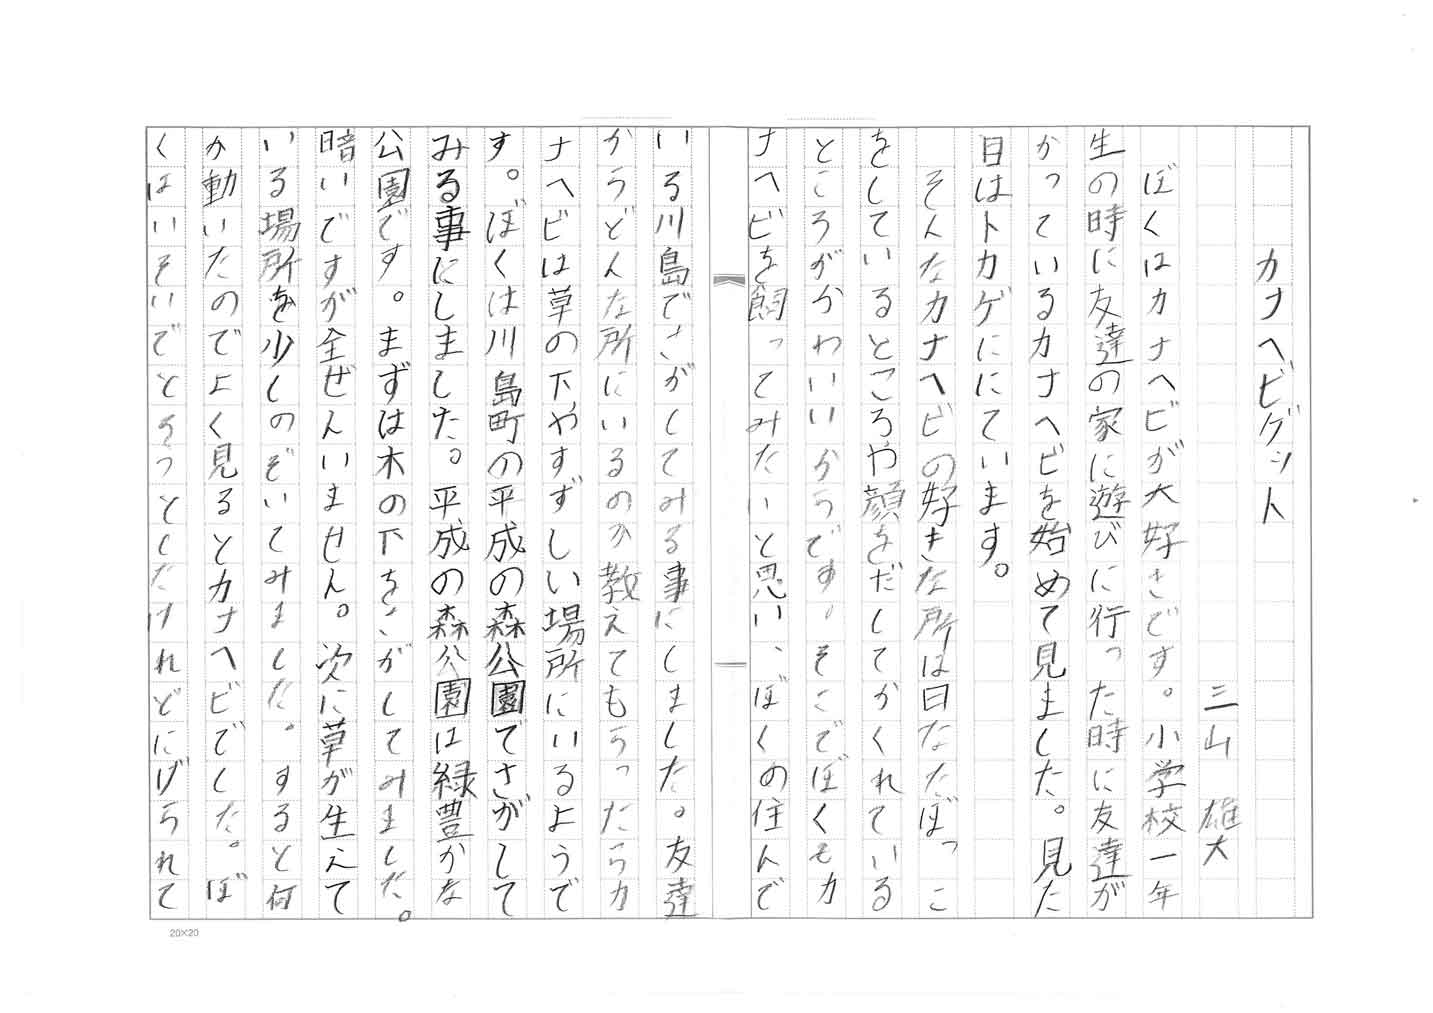 カナヘビゲット
三山 雄大
ぼくはカナヘビが大好きです。小学校一年
生の時に友達の家に遊びに行った時に友達が
かっているカナヘビを始めて見ました。見た
目はトカゲににています。
そんなカナヘビの好きな所は日なたぼっこ
をしているところや顔をだしてかくれている
ところがかわいいからです。そこでぼくもカ
ナヘビを飼ってみたいと思い、ぼくの住んで
いる川島でさがしてみる事にしました。友達
からどんな所にいるのか教えてもらったらカ
ナヘビは草の下やすずしい場所にいるようで
す。ぼくは川島町の平成の森公園でさがして
みる事にしました。平成の森公園は緑豊かな
公園です。まずは木の下をさがしてみました。
暗いですが全ぜんいません。次に草が生えて
いる場所を少しのぞいてみました。すると何
か動いたのでよく見るとカナヘビでした。ぼ
くはいそいでとろうとしたけれどにげられて
20×20